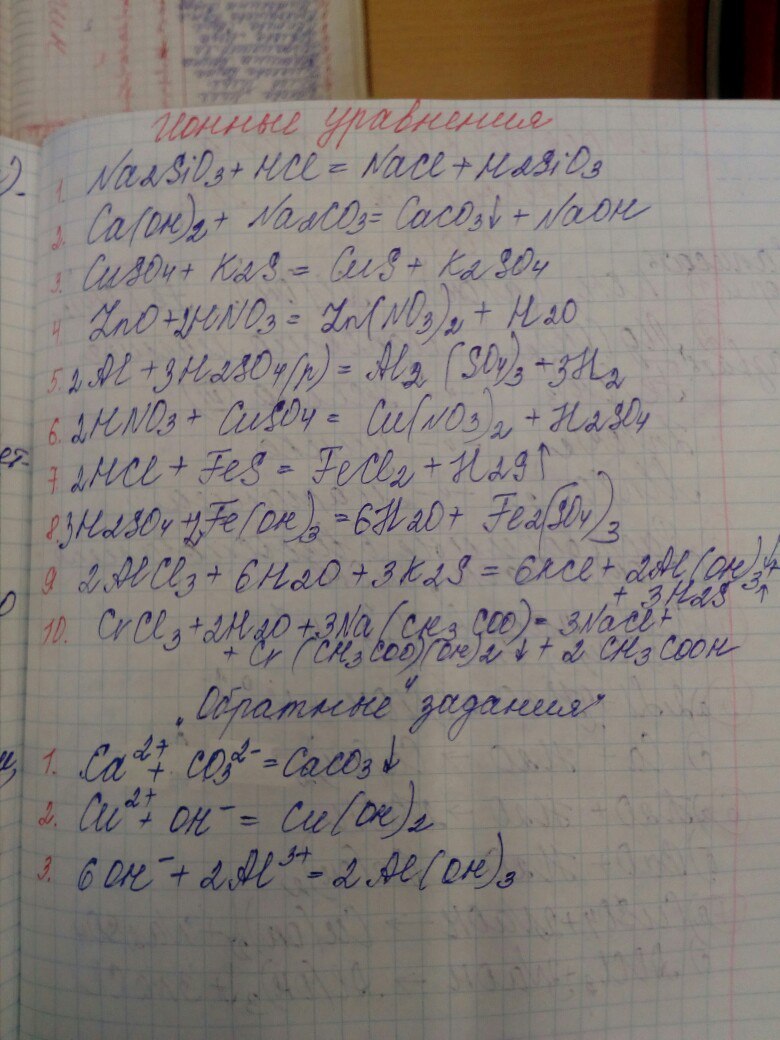 Ионные уравнения
1. Na2SiO3 + HCl = NaCl + H2SiO3
2. Ca(OH)2 + Na2CO3 = CaCO3↓ + NaOH
3. CuSO4 + K2S = CuS + K2SO4
4 ZnO + 2HNO3 = Zn(NO3)2 + H2O
5. 2Al + 3H2SO4(р) = Al2(SO4)3 + 3H2
6. 2HNO3 + CuSO4 = Cu(NO3)2 + H2SO4
7 2HCl + FeS = FeCl2 + H2S↑
8. 3H2SO4 + 2Fe(OH)3 = 6H2O + Fe2(SO4)3
9 2AlCl3 + 6H2O + 3K2S = 6KCl + 2Al(OH)3↓+
+ 3H2S↑
10. CrCl3 + 2H2O + 3Na(CH3COO) = 3NaCl +
+ Cr(CH3COO)(OH)2↓ + 2CH3COOH
„Обратные“ задания
1. Ca2+ + CO3 2- = CaCO3↓
2. Cu2+ + OH- = Cu(OH)2
3. 6OH- + 2Al3+ = 2Al(OH)3